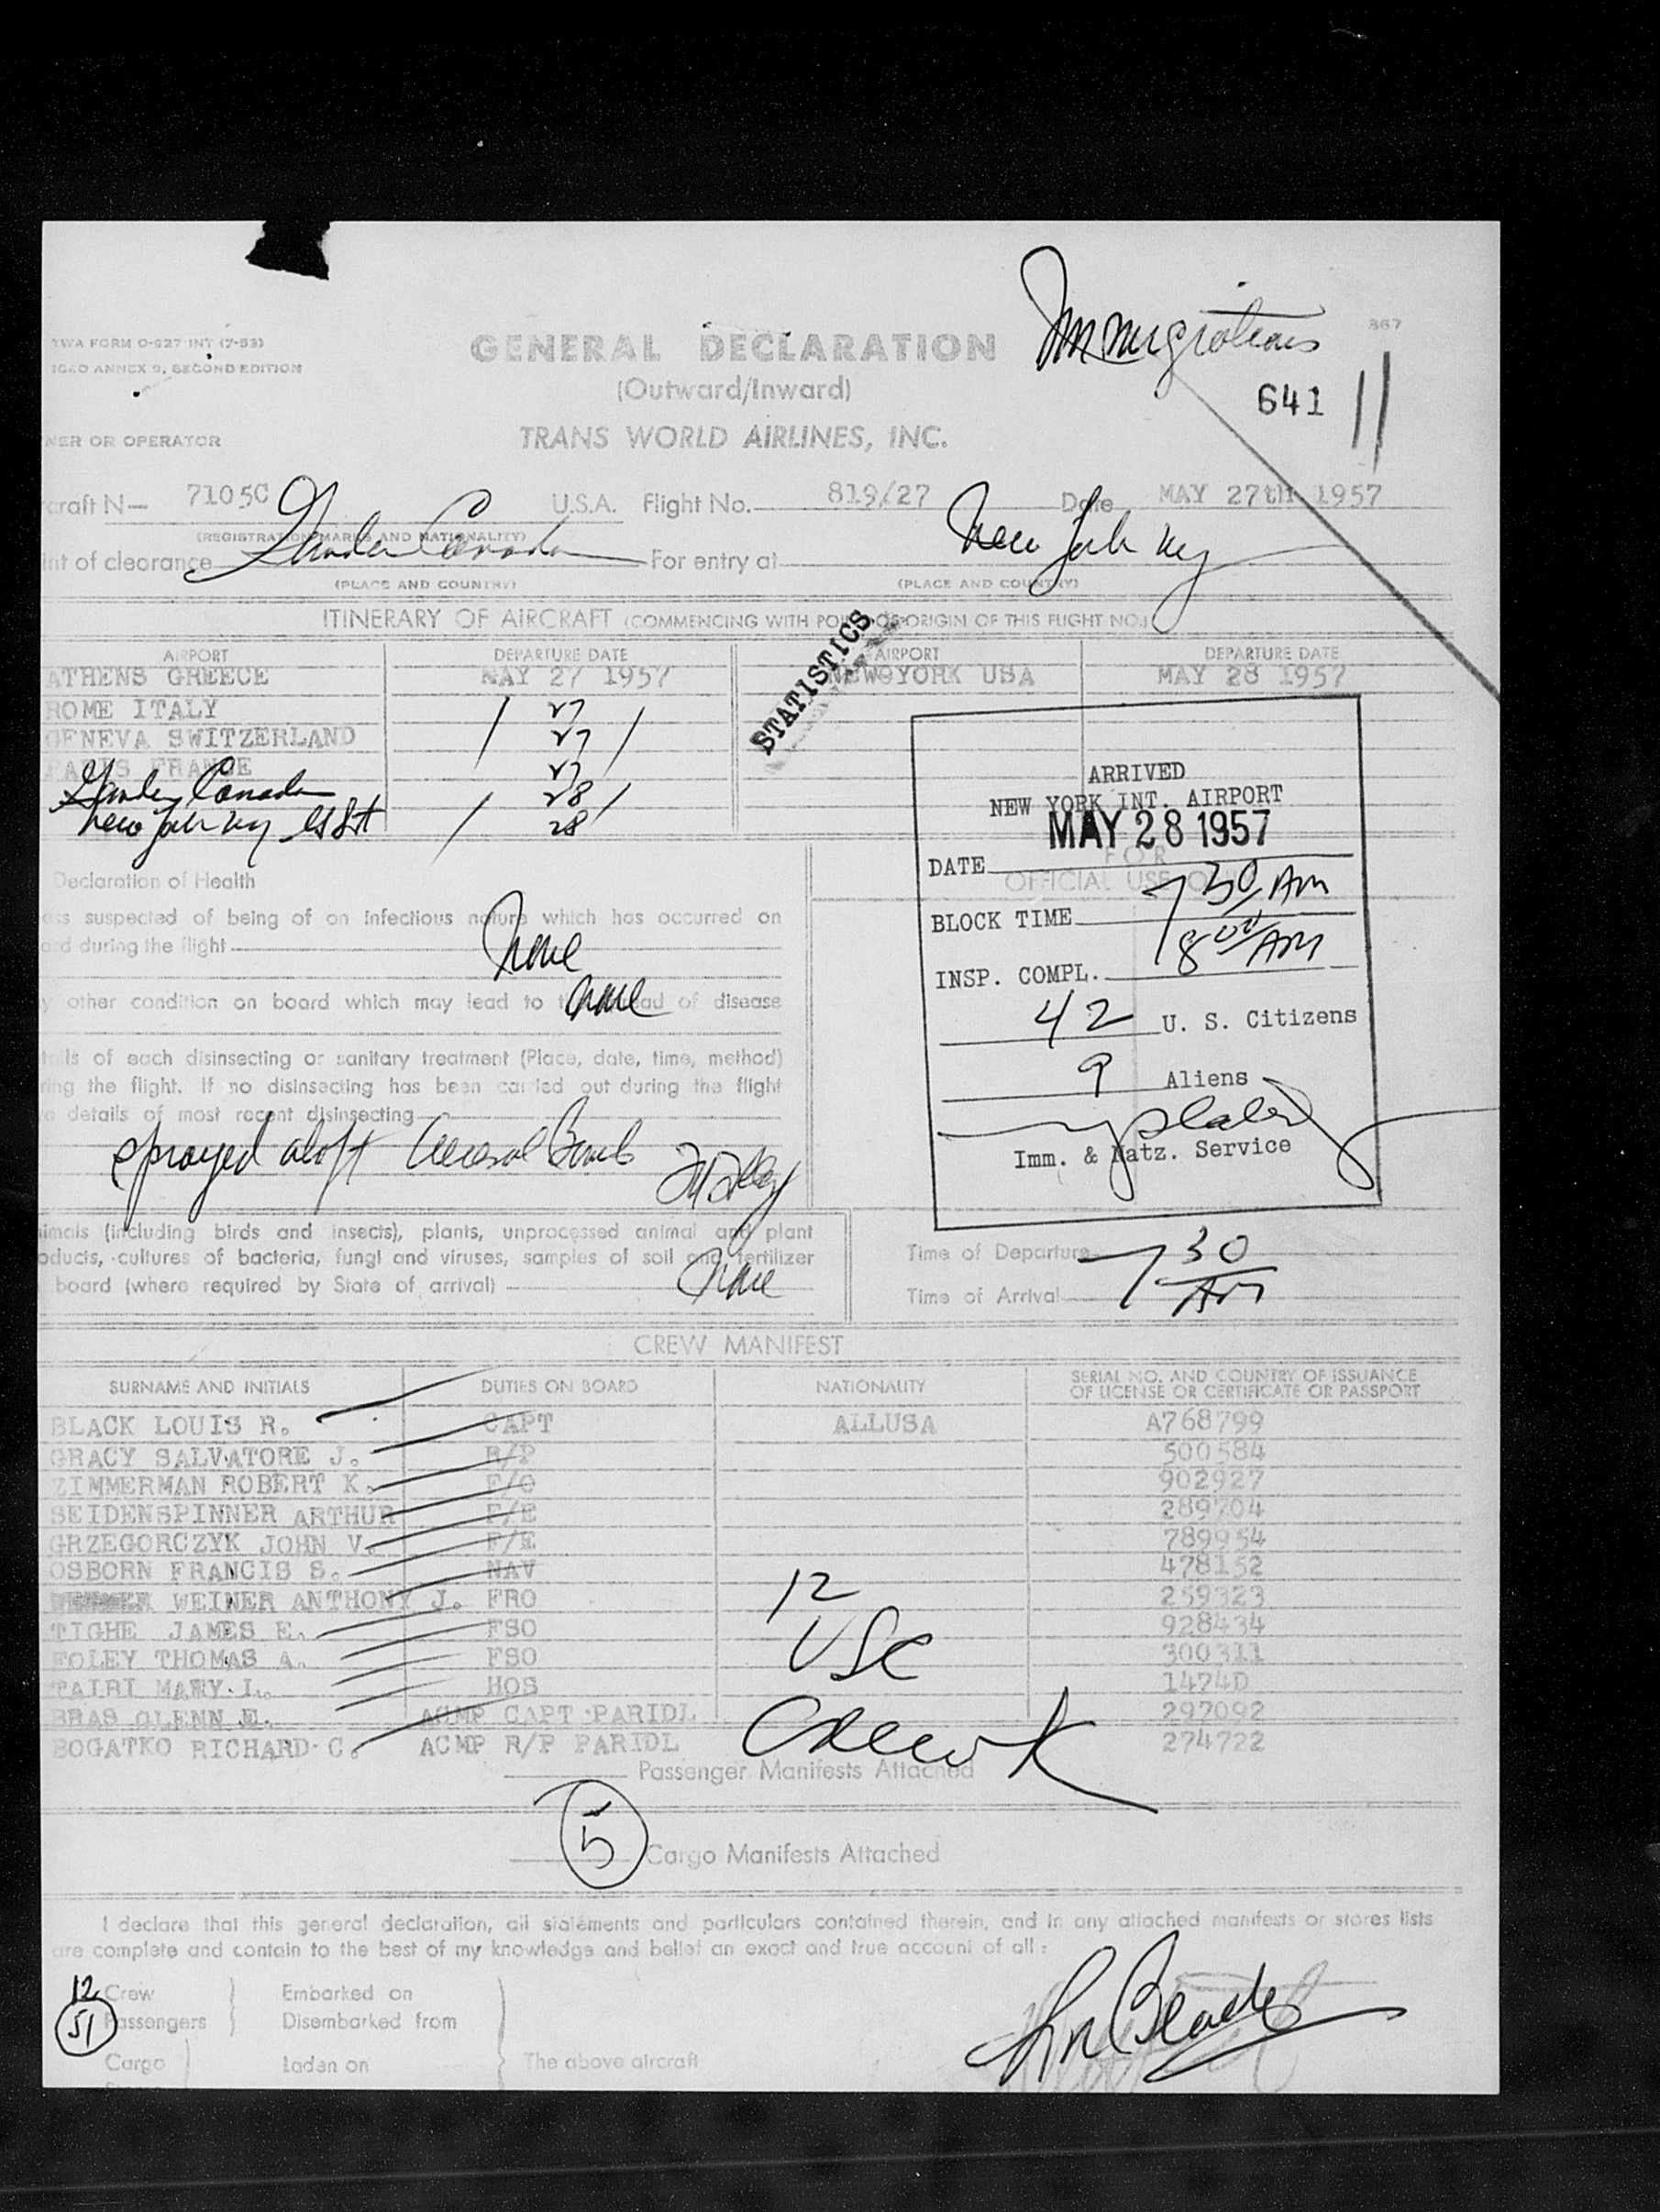 Immigrations
867
TWA FORM O-927 INT (7-53)
ICAO ANNEX 9, SECOND EDITION
GENERAL DECLARATION
(Outward/Inward)
641
NER OR OPERATOR
TRANS WORLD AIRLINES, INC.
craft N— 7105C U.S.A. Flight No. 819/27 Date MAY 27th 1957
(REGISTRATION MARKS AND NATIONALITY)
int of clearance Gander Canada For entry at New York NY
(PLACE AND COUNTRY) (PLACE AND COUNTRY)
ITINERARY OF AIRCRAFT (COMMENCING WITH POINT OF ORIGIN OF THIS FLIGHT NO.)
STATISTICS
AIRPORT DEPARTURE DATE AIRPORT DEPARTURE DATE
ATHENS GREECE MAY 27 1957 NEW YORK USA MAY 28 1957
ROME ITALY 27
GENEVA SWITZERLAND 27
PARIS FRANCE 27
Gander Canada 28
New York NY 28
ARRIVED
NEW YORK INT. AIRPORT
DATE MAY 28 1957
FOR
OFFICIAL USE ONLY
BLOCK TIME 7 30 AM
INSP. COMPL. 8 00 AM
42 U. S. Citizens
9 Aliens
Imm. & Natz. Service
Declaration of Health
ess suspected of being of an infectious nature which has occurred on
ard during the flight None
y other condition on board which may lead to the spread of disease None
tails of each disinsecting or sanitary treatment (Place, date, time, method)
ring the flight. If no disinsecting has been carried out during the flight
e details of most recent disinsecting
sprayed aloft Aerosol Bomb
imals (including birds and insects), plants, unprocessed animal and plant
oducts, cultures of bacteria, fungi and viruses, samples of soil and fertilizer
board (where required by State of arrival) None
Time of Departure
Time of Arrival 7 30 AM
CREW MANIFEST
SURNAME AND INITIALS DUTIES ON BOARD NATIONALITY SERIAL NO. AND COUNTRY OF ISSUANCE OF LICENSE OR CERTIFICATE OR PASSPORT
BLACK LOUIS R. CAPT ALLUSA A768799
GRACY SALVATORE J. R/P 500584
ZIMMERMAN ROBERT K. F/O 902927
SEIDENSPINNER ARTHUR F/E 289704
GRZEGORCZYK JOHN V. F/E 789954
OSBORN FRANCIS S. NAV 478152
WEINER ANTHONY J. FRO 259323
TIGHE JAMES E. FSO 928434
FOLEY THOMAS A. FSO 300311
TAIRI MARY L. HOS 1474D
BRAS GLENN E. ACMP CAPT PARIDL 297092
BOGATKO RICHARD C. ACMP R/P PARIDL 274722
12
USC
Passenger Manifests Attached
5 Cargo Manifests Attached
I declare that this general declaration, all statements and particulars contained therein, and in any attached manifests or stores lists
are complete and contain to the best of my knowledge and belief an exact and true account of all :
12 Crew Embarked on
51 Passengers Disembarked from
Cargo Laden on The above aircraft